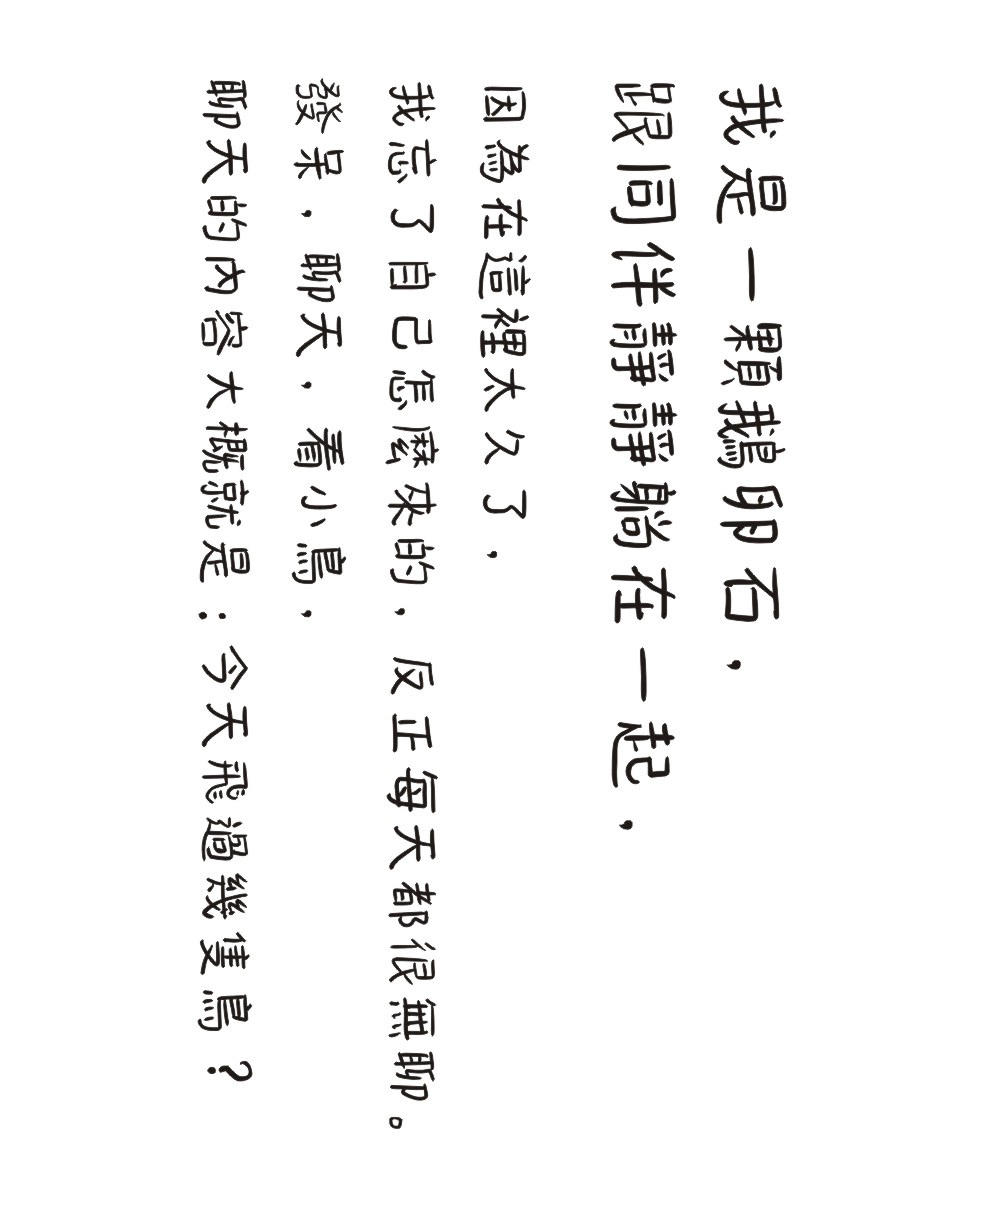 我是一顆鵝卵石，
跟同伴靜靜躺在一起，
因為在這裡太久了，
我忘了自己怎麼來的，反正每天都很無聊。
發呆，聊天，看小鳥，
聊天的內容大概就是：今天飛過幾隻鳥？